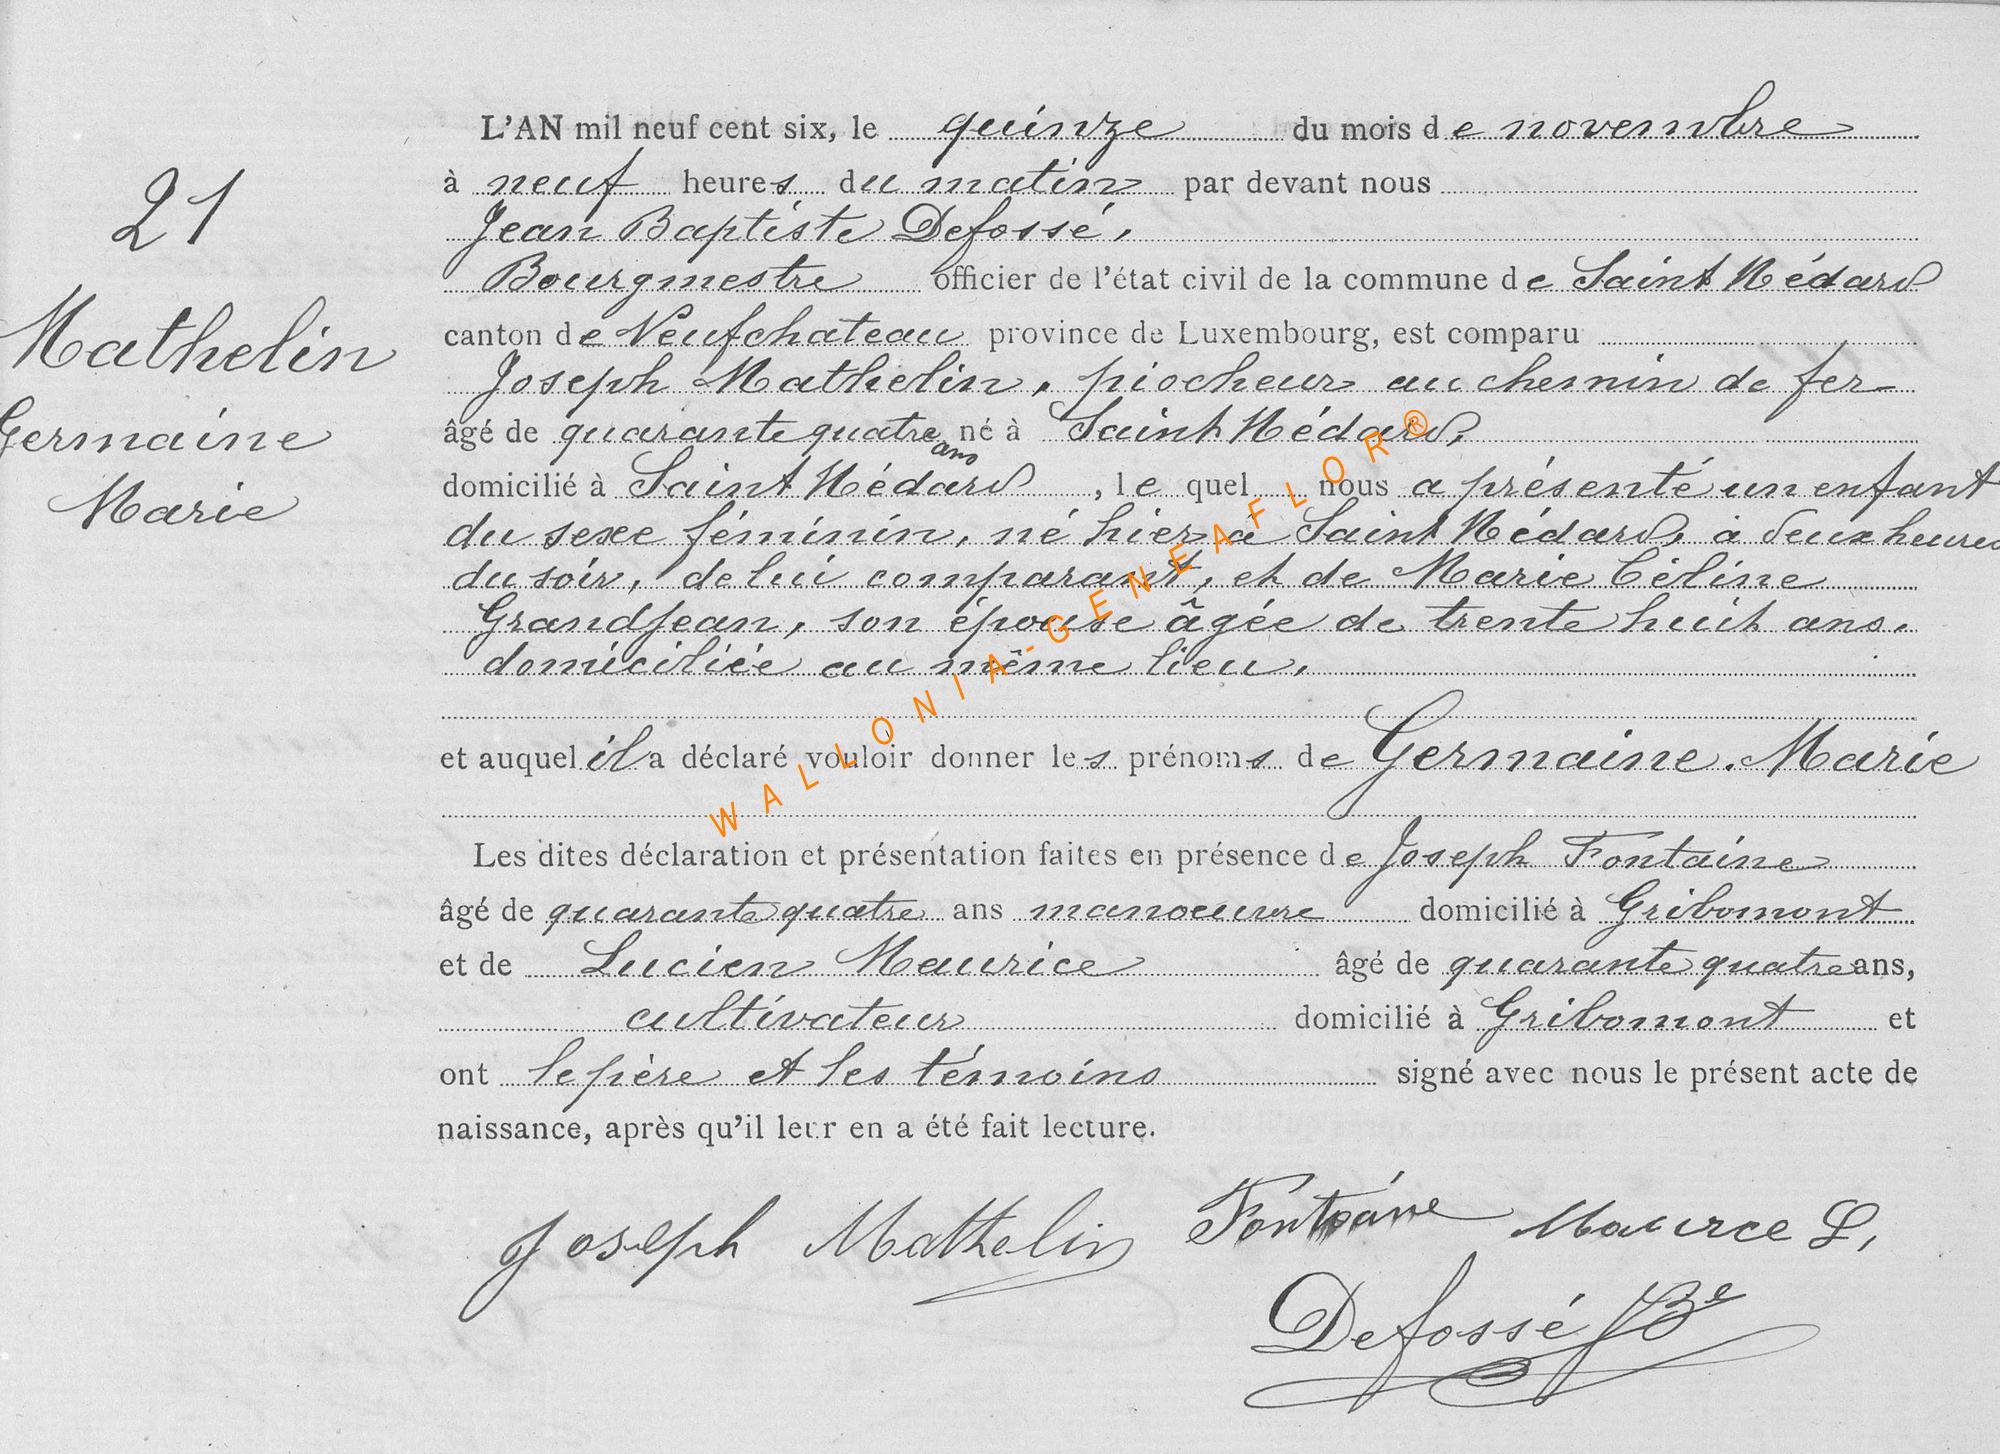 21
Mathelin
Germaine
Marie
L'AN mil neuf cent six, le quinze du mois de novembre
à neuf heures du matin par devant nous
Jean Baptiste Defossé,
Bourgmestre officier de l'état civil de la commune de Saint Médard
canton de Neufchateau province de Luxembourg, est comparu
Joseph Mathelin, piocheur au chemin de fer
âgé de quarante quatre ans né à Saint Médard,
domicilié à Saint Médard, le quel nous a présenté un enfant
du sexe féminin, né hier à Saint Médard, à deux heures
du soir, de lui comparant, et de Marie Céline
Grandjean, son épouse âgée de trente huit ans,
domiciliée au même lieu,
et auquel il a déclaré vouloir donner les prénoms de Germaine. Marie
Les dites déclaration et présentation faites en présence de Joseph Fontaine
âgé de quarante quatre ans manoeuvre domicilié à Gribomont
et de Lucien Maurice âgé de quarante quatre ans,
cultivateur domicilié à Gribomont et
ont le père et les témoins signé avec nous le présent acte de
naissance, après qu'il leur en a été fait lecture.
Joseph Mathelin Fontaine Maurce L,
Defossé JBe
WALLONIA-GENEAFLOR®